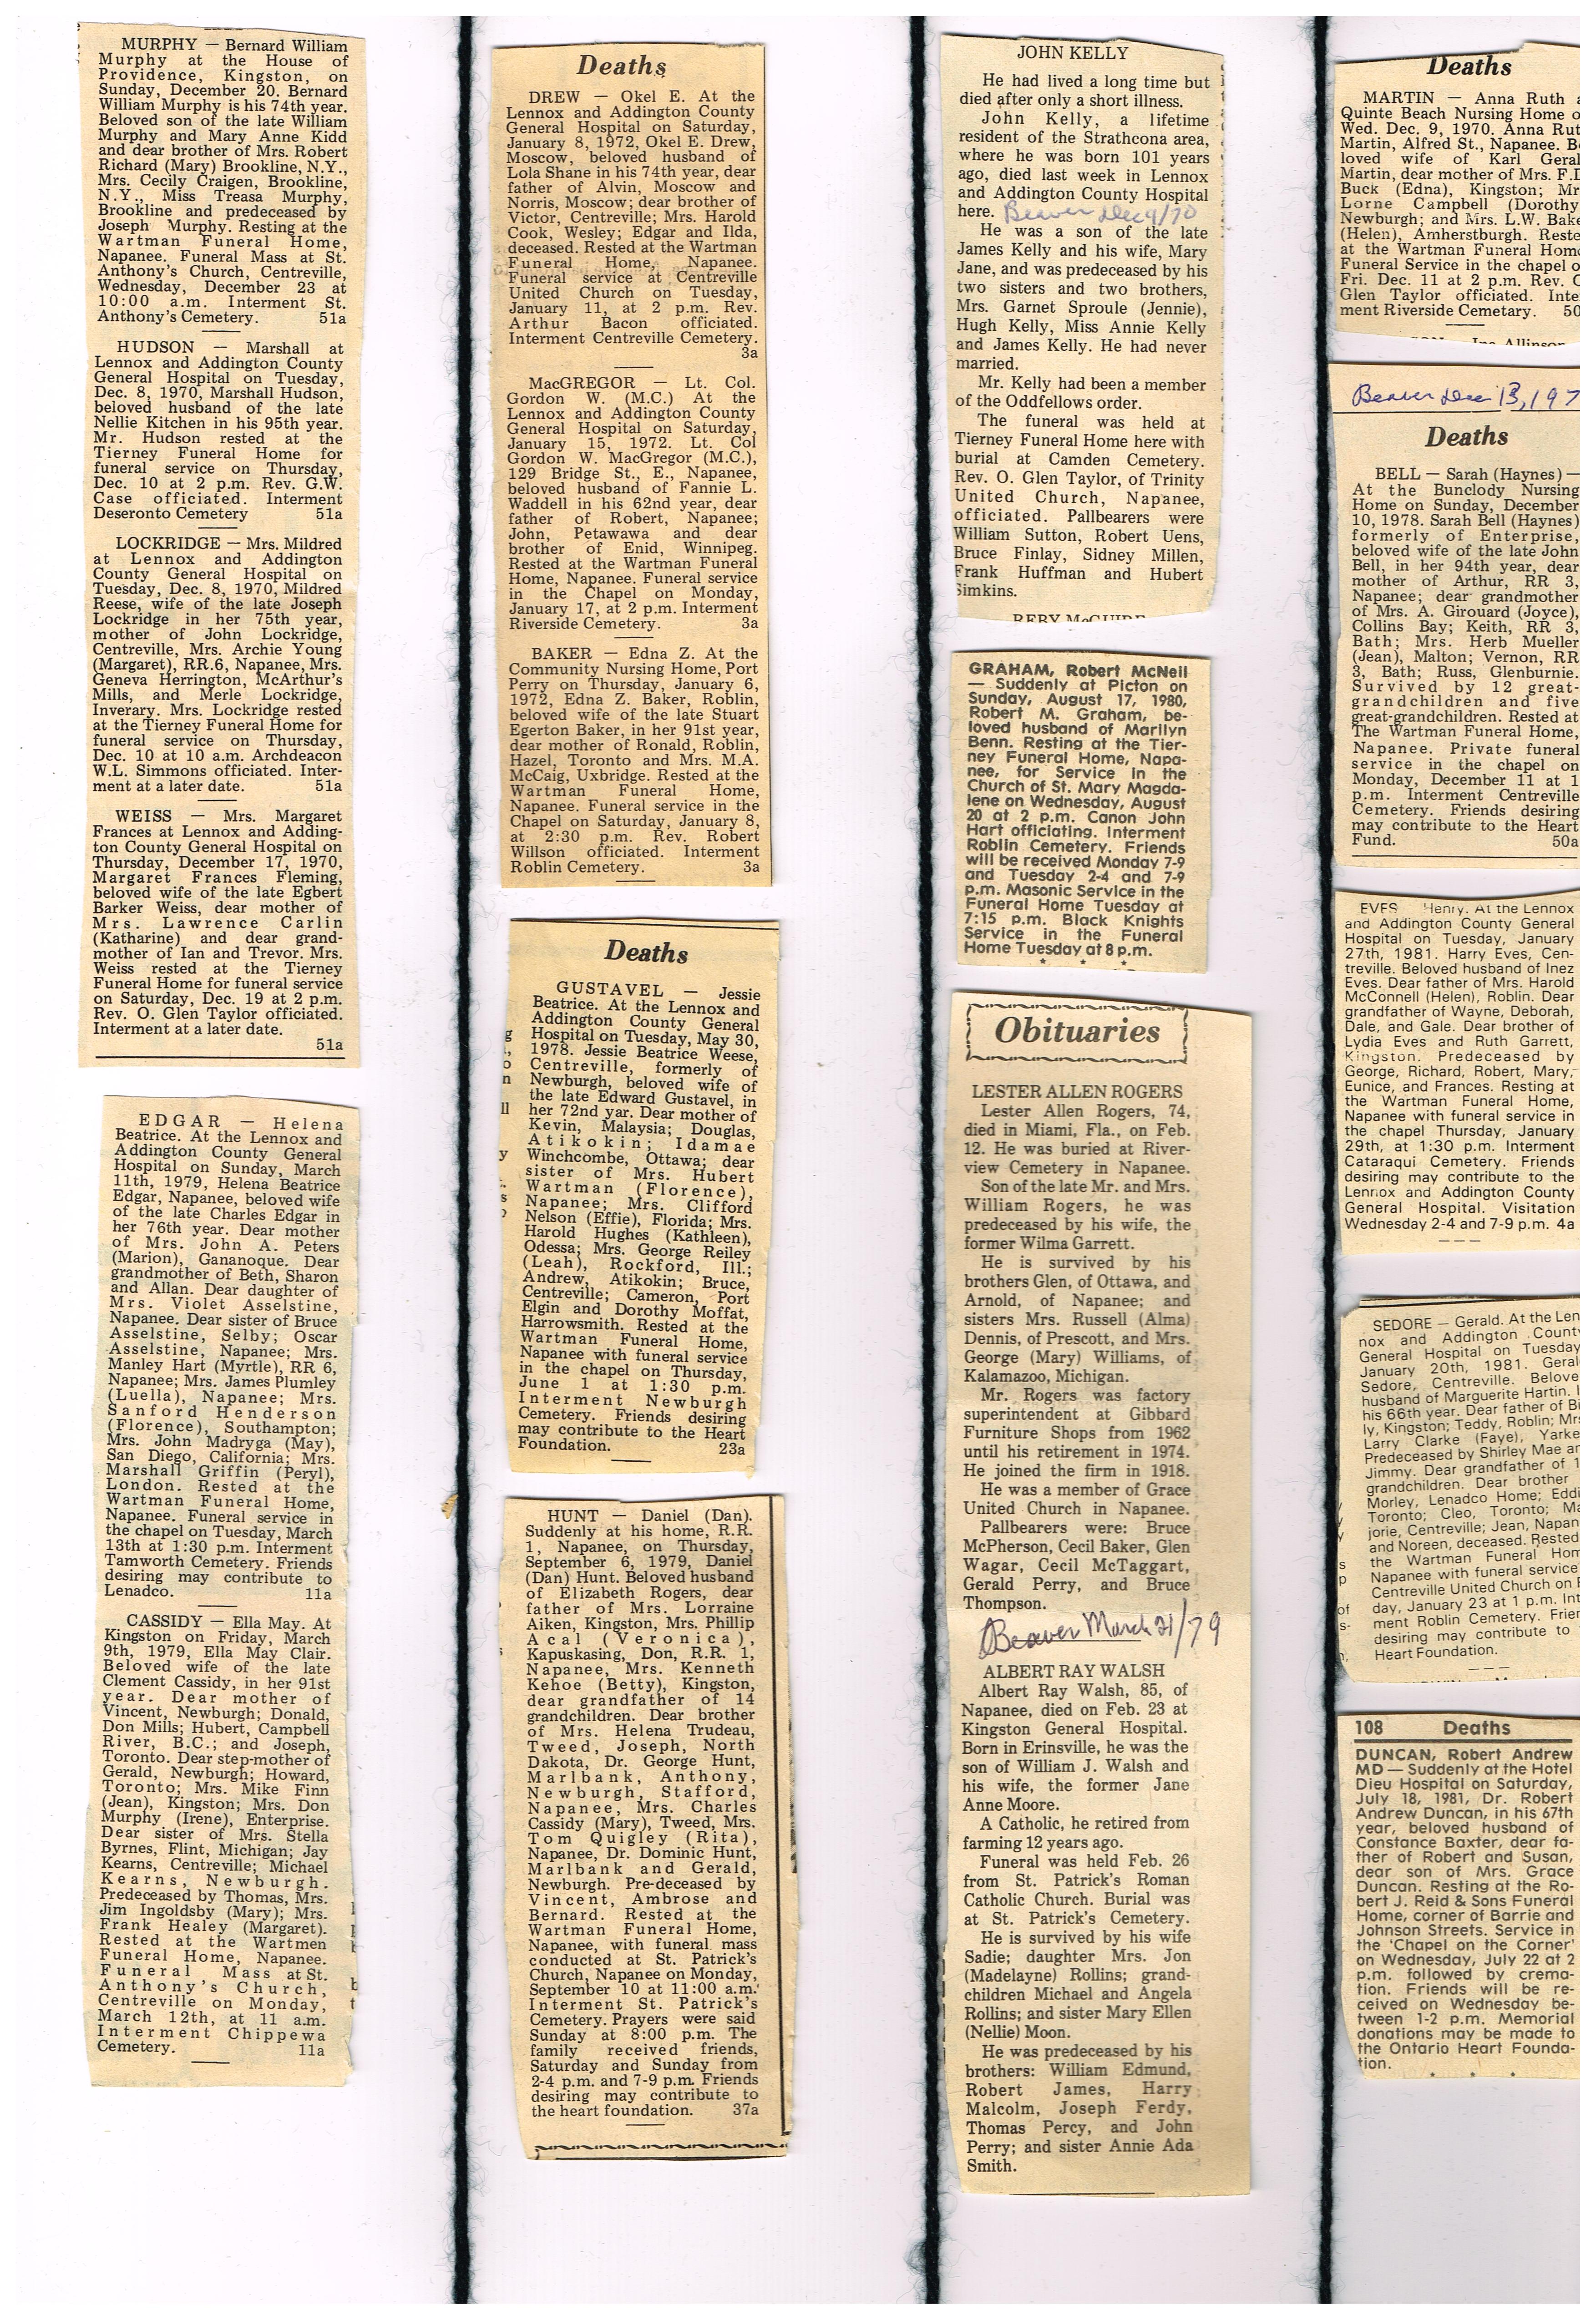 MURPHY — Bernard William
Murphy at the House of
Providence, Kingston, on
Sunday, December 20. Bernard
William Murphy is his 74th year.
Beloved son of the late William
Murphy and Mary Anne Kidd
and dear brother of Mrs. Robert
Richard (Mary) Brookline, N.Y.,
Mrs. Cecily Craigen, Brookline,
N.Y., Miss Treasa Murphy,
Brookline and predeceased by
Joseph Murphy. Resting at the
Wartman Funeral Home,
Napanee. Funeral Mass at St.
Anthony's Church, Centreville,
Wednesday, December 23 at
10:00 a.m. Interment St.
Anthony's Cemetery. 51a
HUDSON — Marshall at
Lennox and Addington County
General Hospital on Tuesday,
Dec. 8, 1970, Marshall Hudson,
beloved husband of the late
Nellie Kitchen in his 95th year.
Mr. Hudson rested at the
Tierney Funeral Home for
funeral service on Thursday,
Dec. 10 at 2 p.m. Rev. G.W.
Case officiated. Interment
Deseronto Cemetery 51a
LOCKRIDGE — Mrs. Mildred
at Lennox and Addington
County General Hospital on
Tuesday, Dec. 8, 1970, Mildred
Reese, wife of the late Joseph
Lockridge in her 75th year,
mother of John Lockridge,
Centreville, Mrs. Archie Young
(Margaret), RR.6, Napanee, Mrs.
Geneva Herrington, McArthur's
Mills, and Merle Lockridge,
Inverary. Mrs. Lockridge rested
at the Tierney Funeral Home for
funeral service on Thursday,
Dec. 10 at 10 a.m. Archdeacon
W.L. Simmons officiated. Inter-
ment at a later date. 51a
WEISS — Mrs. Margaret
Frances at Lennox and Adding-
ton County General Hospital on
Thursday, December 17, 1970,
Margaret Frances Fleming,
beloved wife of the late Egbert
Barker Weiss, dear mother of
Mrs. Lawrence Carlin
(Katharine) and dear grand-
mother of Ian and Trevor. Mrs.
Weiss rested at the Tierney
Funeral Home for funeral service
on Saturday, Dec. 19 at 2 p.m.
Rev. O. Glen Taylor officiated.
Interment at a later date.
51a
EDGAR — Helena
Beatrice. At the Lennox and
Addington County General
Hospital on Sunday, March
11th, 1979, Helena Beatrice
Edgar, Napanee, beloved wife
of the late Charles Edgar in
her 76th year. Dear mother
of Mrs. John A. Peters
(Marion), Gananoque. Dear
grandmother of Beth, Sharon
and Allan. Dear daughter of
Mrs. Violet Asselstine,
Napanee. Dear sister of Bruce
Asselstine, Selby; Oscar
Asselstine, Napanee; Mrs.
Manley Hart (Myrtle), RR 6,
Napanee; Mrs. James Plumley
(Luella), Napanee; Mrs.
Sanford Henderson
(Florence), Southampton;
Mrs. John Madryga (May),
San Diego, California; Mrs.
Marshall Griffin (Peryl),
London. Rested at the
Wartman Funeral Home,
Napanee. Funeral service in
the chapel on Tuesday, March
13th at 1:30 p.m. Interment
Tamworth Cemetery. Friends
desiring may contribute to
Lenadco. 11a
CASSIDY — Ella May. At
Kingston on Friday, March
9th, 1979, Ella May Clair.
Beloved wife of the late
Clement Cassidy, in her 91st
year. Dear mother of
Vincent, Newburgh; Donald,
Don Mills; Hubert, Campbell
River, B.C.; and Joseph,
Toronto. Dear step-mother of
Gerald, Newburgh; Howard,
Toronto; Mrs. Mike Finn
(Jean), Kingston; Mrs. Don
Murphy (Irene), Enterprise.
Dear sister of Mrs. Stella
Byrnes, Flint, Michigan; Jay
Kearns, Centreville; Michael
Kearns, Newburgh.
Predeceased by Thomas, Mrs.
Jim Ingoldsby (Mary); Mrs.
Frank Healey (Margaret).
Rested at the Wartmen
Funeral Home, Napanee.
Funeral Mass at St.
Anthony's Church,
Centreville on Monday,
March 12th, at 11 a.m.
Interment Chippewa
Cemetery. 11a
Deaths
DREW — Okel E. At the
Lennox and Addington County
General Hospital on Saturday,
January 8, 1972, Okel E. Drew,
Moscow, beloved husband of
Lola Shane in his 74th year, dear
father of Alvin, Moscow and
Norris, Moscow; dear brother of
Victor, Centreville; Mrs. Harold
Cook, Wesley; Edgar and Ilda,
deceased. Rested at the Wartman
Funeral Home, Napanee.
Funeral service at Centreville
United Church on Tuesday,
January 11, at 2 p.m. Rev.
Arthur Bacon officiated.
Interment Centreville Cemetery.
3a
MacGREGOR — Lt. Col.
Gordon W. (M.C.) At the
Lennox and Addington County
General Hospital on Saturday,
January 15, 1972. Lt. Col
Gordon W. MacGregor (M.C.),
129 Bridge St., E., Napanee,
beloved husband of Fannie L.
Waddell in his 62nd year, dear
father of Robert, Napanee;
John, Petawawa and dear
brother of Enid, Winnipeg.
Rested at the Wartman Funeral
Home, Napanee. Funeral service
in the Chapel on Monday,
January 17, at 2 p.m. Interment
Riverside Cemetery. 3a
BAKER — Edna Z. At the
Community Nursing Home, Port
Perry on Thursday, January 6,
1972, Edna Z. Baker, Roblin,
beloved wife of the late Stuart
Egerton Baker, in her 91st year,
dear mother of Ronald, Roblin,
Hazel, Toronto and Mrs. M.A.
McCaig, Uxbridge. Rested at the
Wartman Funeral Home,
Napanee. Funeral service in the
Chapel on Saturday, January 8,
at 2:30 p.m. Rev. Robert
Willson officiated. Interment
Roblin Cemetery. 3a
Deaths
GUSTAVEL — Jessie
Beatrice. At the Lennox and
Addington County General
Hospital on Tuesday, May 30,
1978. Jessie Beatrice Weese,
Centreville, formerly of
Newburgh, beloved wife of
the late Edward Gustavel, in
her 72nd yar. Dear mother of
Kevin, Malaysia; Douglas,
Atikokin; Idamae
Winchcombe, Ottawa; dear
sister of Mrs. Hubert
Wartman (Florence),
Napanee; Mrs. Clifford
Nelson (Effie), Florida; Mrs.
Harold Hughes (Kathleen),
Odessa; Mrs. George Reiley
(Leah), Rockford, Ill.;
Andrew, Atikokin; Bruce,
Centreville; Cameron, Port
Elgin and Dorothy Moffat,
Harrowsmith. Rested at the
Wartman Funeral Home,
Napanee with funeral service
in the chapel on Thursday,
June 1 at 1:30 p.m.
Interment Newburgh
Cemetery. Friends desiring
may contribute to the Heart
Foundation. 23a
HUNT — Daniel (Dan).
Suddenly at his home, R.R.
1, Napanee, on Thursday,
September 6, 1979, Daniel
(Dan) Hunt. Beloved husband
of Elizabeth Rogers, dear
father of Mrs. Lorraine
Aiken, Kingston, Mrs. Phillip
Acal (Veronica),
Kapuskasing, Don, R.R. 1,
Napanee, Mrs. Kenneth
Kehoe (Betty), Kingston,
dear grandfather of 14
grandchildren. Dear brother
of Mrs. Helena Trudeau,
Tweed, Joseph, North
Dakota, Dr. George Hunt,
Marlbank, Anthony,
Newburgh, Stafford,
Napanee, Mrs. Charles
Cassidy (Mary), Tweed, Mrs.
Tom Quigley (Rita),
Napanee, Dr. Dominic Hunt,
Marlbank and Gerald,
Newburgh. Pre-deceased by
Vincent, Ambrose and
Bernard. Rested at the
Wartman Funeral Home,
Napanee, with funeral mass
conducted at St. Patrick's
Church, Napanee on Monday,
September 10 at 11:00 a.m.
Interment St. Patrick's
Cemetery. Prayers were said
Sunday at 8:00 p.m. The
family received friends,
Saturday and Sunday from
2-4 p.m. and 7-9 p.m. Friends
desiring may contribute to
the heart foundation. 37a
JOHN KELLY
He had lived a long time but
died after only a short illness.
John Kelly, a lifetime
resident of the Strathcona area,
where he was born 101 years
ago, died last week in Lennox
and Addington County Hospital
here. Beaver Dec 9/70
He was a son of the late
James Kelly and his wife, Mary
Jane, and was predeceased by his
two sisters and two brothers,
Mrs. Garnet Sproule (Jennie),
Hugh Kelly, Miss Annie Kelly
and James Kelly. He had never
married.
Mr. Kelly had been a member
of the Oddfellows order.
The funeral was held at
Tierney Funeral Home here with
burial at Camden Cemetery.
Rev. O. Glen Taylor, of Trinity
United Church, Napanee,
officiated. Pallbearers were
William Sutton, Robert Uens,
Bruce Finlay, Sidney Millen,
Frank Huffman and Hubert
Simkins.
REBY McGUIRE
GRAHAM, Robert McNeil
— Suddenly at Picton on
Sunday, August 17, 1980,
Robert M. Graham, be-
loved husband of Marilyn
Benn. Resting at the Tier-
ney Funeral Home, Napa-
nee, for Service in the
Church of St. Mary Magda-
lene on Wednesday, August
20 at 2 p.m. Canon John
Hart officiating. Interment
Roblin Cemetery. Friends
will be received Monday 7-9
and Tuesday 2-4 and 7-9
p.m. Masonic Service in the
Funeral Home Tuesday at
7:15 p.m. Black Knights
Service in the Funeral
Home Tuesday at 8 p.m.
Obituaries
LESTER ALLEN ROGERS
Lester Allen Rogers, 74,
died in Miami, Fla., on Feb.
12. He was buried at River-
view Cemetery in Napanee.
Son of the late Mr. and Mrs.
William Rogers, he was
predeceased by his wife, the
former Wilma Garrett.
He is survived by his
brothers Glen, of Ottawa, and
Arnold, of Napanee; and
sisters Mrs. Russell (Alma)
Dennis, of Prescott, and Mrs.
George (Mary) Williams, of
Kalamazoo, Michigan.
Mr. Rogers was factory
superintendent at Gibbard
Furniture Shops from 1962
until his retirement in 1974.
He joined the firm in 1918.
He was a member of Grace
United Church in Napanee.
Pallbearers were: Bruce
McPherson, Cecil Baker, Glen
Wagar, Cecil McTaggart,
Gerald Perry, and Bruce
Thompson.
Beaver March 21/79
ALBERT RAY WALSH
Albert Ray Walsh, 85, of
Napanee, died on Feb. 23 at
Kingston General Hospital.
Born in Erinsville, he was the
son of William J. Walsh and
his wife, the former Jane
Anne Moore.
A Catholic, he retired from
farming 12 years ago.
Funeral was held Feb. 26
from St. Patrick's Roman
Catholic Church. Burial was
at St. Patrick's Cemetery.
He is survived by his wife
Sadie; daughter Mrs. Jon
(Madelayne) Rollins; grand-
children Michael and Angela
Rollins; and sister Mary Ellen
(Nellie) Moon.
He was predeceased by his
brothers: William Edmund,
Robert James, Harry
Malcolm, Joseph Ferdy,
Thomas Percy, and John
Perry; and sister Annie Ada
Smith.
Deaths
MARTIN — Anna Ruth a
Quinte Beach Nursing Home o
Wed. Dec. 9, 1970. Anna Rut
Martin, Alfred St., Napanee. Be
loved wife of Karl Geral
Martin, dear mother of Mrs. F.D
Buck (Edna), Kingston; Mr
Lorne Campbell (Dorothy
Newburgh; and Mrs. L.W. Bake
(Helen), Amherstburgh. Reste
at the Wartman Funeral Home
Funeral Service in the chapel o
Fri. Dec. 11 at 2 p.m. Rev. O
Glen Taylor officiated. Inte
ment Riverside Cemetary. 50
Ina Allinson
Beaver Dec 13, 197
Deaths
BELL — Sarah (Haynes) —
At the Bunclody Nursing
Home on Sunday, December
10, 1978. Sarah Bell (Haynes)
formerly of Enterprise,
beloved wife of the late John
Bell, in her 94th year, dear
mother of Arthur, RR 3,
Napanee; dear grandmother
of Mrs. A. Girouard (Joyce),
Collins Bay; Keith, RR 3,
Bath; Mrs. Herb Mueller
(Jean), Malton; Vernon, RR
3, Bath; Russ, Glenburnie.
Survived by 12 great-
grandchildren and five
great-grandchildren. Rested at
The Wartman Funeral Home,
Napanee. Private funeral
service in the chapel on
Monday, December 11 at 1
p.m. Interment Centreville
Cemetery. Friends desiring
may contribute to the Heart
Fund. 50a
EVES Henry. At the Lennox
and Addington County General
Hospital on Tuesday, January
27th, 1981. Harry Eves, Cen-
treville. Beloved husband of Inez
Eves. Dear father of Mrs. Harold
McConnell (Helen), Roblin. Dear
grandfather of Wayne, Deborah,
Dale, and Gale. Dear brother of
Lydia Eves and Ruth Garrett,
Kingston. Predeceased by
George, Richard, Robert, Mary,
Eunice, and Frances. Resting at
the Wartman Funeral Home,
Napanee with funeral service in
the chapel Thursday, January
29th, at 1:30 p.m. Interment
Cataraqui Cemetery. Friends
desiring may contribute to the
Lennox and Addington County
General Hospital. Visitation
Wednesday 2-4 and 7-9 p.m. 4a
SEDORE — Gerald. At the Len
nox and Addington County
General Hospital on Tuesday
January 20th, 1981. Geral
Sedore, Centreville. Belove
husband of Marguerite Hartin. I
his 66th year. Dear father of Bi
ly, Kingston; Teddy, Roblin; Mrs
Larry Clarke (Faye), Yarke
Predeceased by Shirley Mae an
Jimmy. Dear grandfather of 1
grandchildren. Dear brother
Morley, Lenadco Home; Eddi
Toronto; Cleo, Toronto; Ma
jorie, Centreville; Jean, Napan
and Noreen, deceased. Rested
the Wartman Funeral Hom
Napanee with funeral service
Centreville United Church on F
day, January 23 at 1 p.m. Int
ment Roblin Cemetery. Frien
desiring may contribute to
Heart Foundation.
108 Deaths
DUNCAN, Robert Andrew
MD — Suddenly at the Hotel
Dieu Hospital on Saturday,
July 18, 1981, Dr. Robert
Andrew Duncan, in his 67th
year, beloved husband of
Constance Baxter, dear fa-
ther of Robert and Susan,
dear son of Mrs. Grace
Duncan. Resting at the Ro-
bert J. Reid & Sons Funeral
Home, corner of Barrie and
Johnson Streets. Service in
the 'Chapel on the Corner'
on Wednesday, July 22 at 2
p.m. followed by crema-
tion. Friends will be re-
ceived on Wednesday be-
tween 1-2 p.m. Memorial
donations may be made to
the Ontario Heart Founda-
tion.